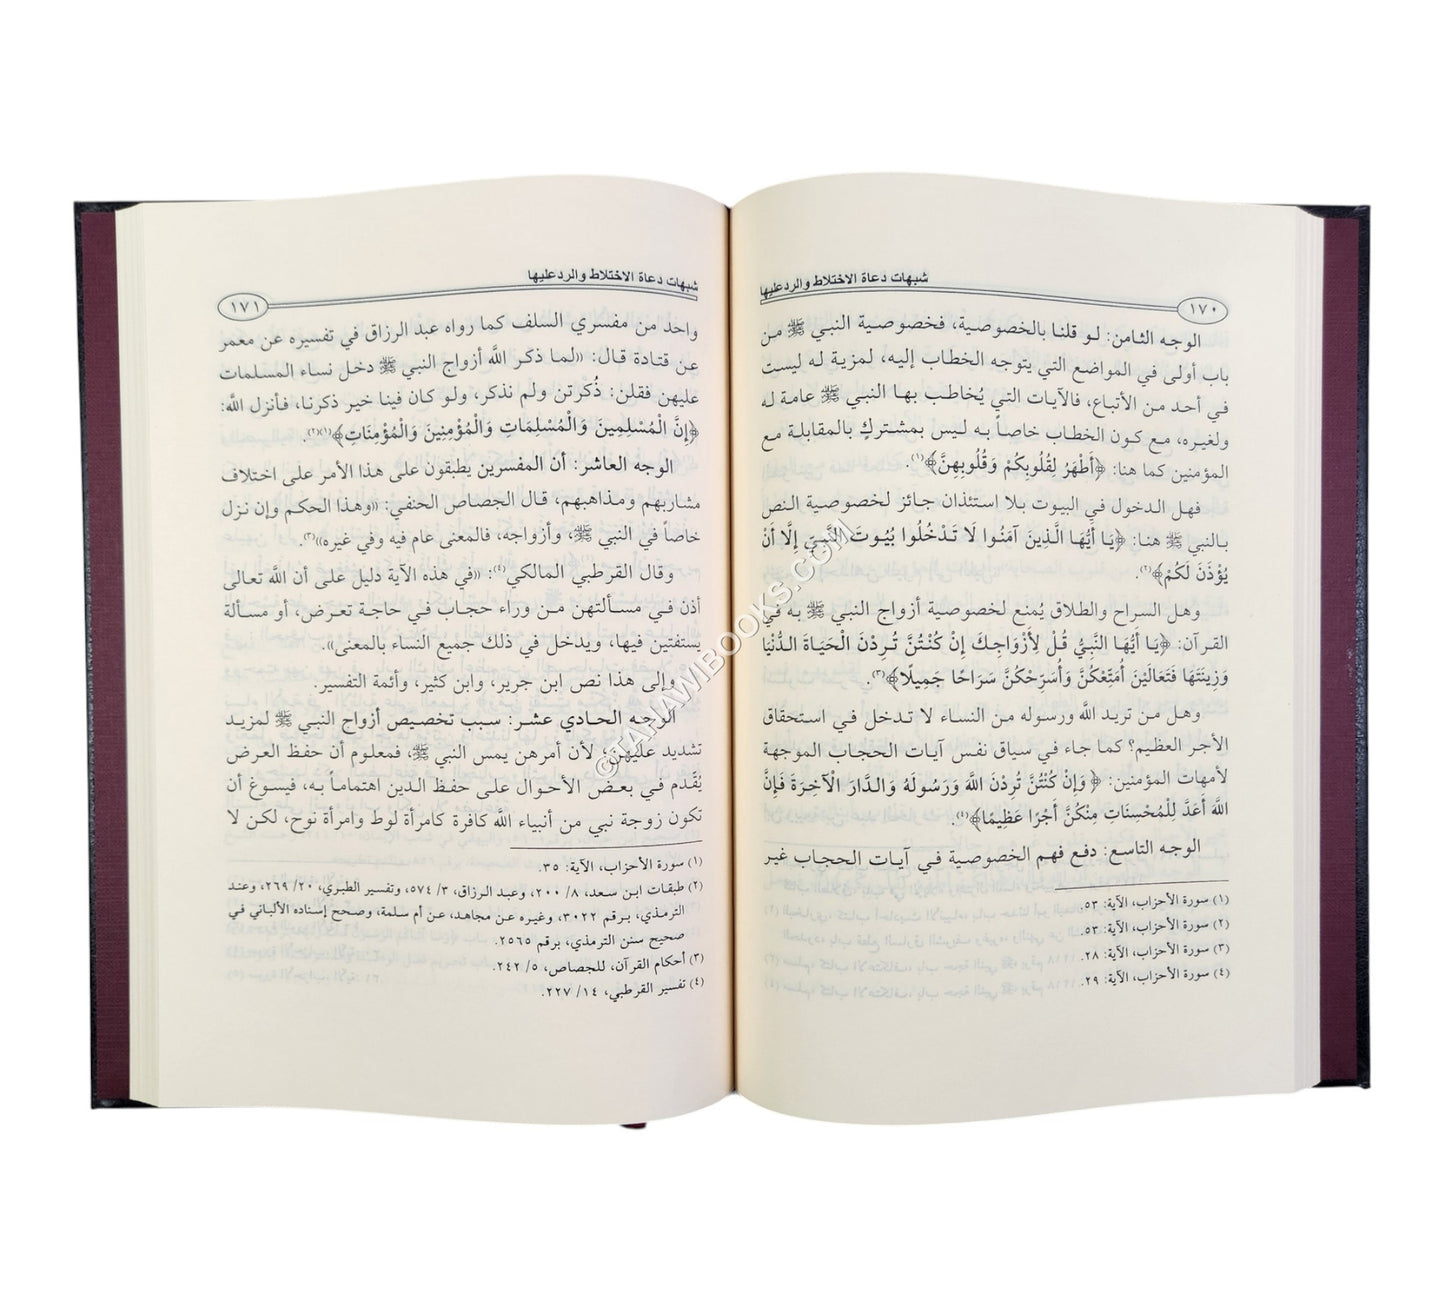 شبهات دعاة الاختلاط والرد عليها
١٧٠
الوجه الثامن: لو قلنا بالخصوصية، فخصوصية النبي ﷺ من
باب أولى في المواضع التي يتوجه الخطاب إليه، لمزية له ليست
في أحد من الأتباع، فالآيات التي يُخاطب بها النبي ﷺ عامة له
ولغيره، مع كون الخطاب خاصاً به ليس بمشتركٍ بالمقابلة مع
المؤمنين كما هنا: ﴿أَطْهَرُ لِقُلُوبِكُمْ وَقُلُوبِهِنَّ﴾(١).
فهل الدخول في البيوت بلا استئذان جائز لخصوصية النص
بالنبي ﷺ هنا: ﴿يَا أَيُّهَا الَّذِينَ آمَنُوا لَا تَدْخُلُوا بُيُوتَ النَّبِيِّ إِلَّا أَنْ
يُؤْذَنَ لَكُمْ﴾(٢).
وهل السراح والطلاق يُمنع لخصوصية أزواج النبي ﷺ به في
القرآن: ﴿يَا أَيُّهَا النَّبِيُّ قُل لِأَزْوَاجِكَ إِنْ كُنْتُنَّ تُرِدْنَ الْحَيَاةَ الدُّنْيَا
وَزِينَتَهَا فَتَعَالَيْنَ أُمَتِّعْكُنَّ وَأُسَرِّحْكُنَّ سَرَاحًا جَمِيلًا﴾(٣).
وهل من تريد الله ورسوله من النساء لا تدخل في استحقاق
الأجر العظيم؟ كما جاء في سياق نفس آيات الحجاب الموجهة
لأمهات المؤمنين: ﴿وَإِنْ كُنْتُنَّ تُرِدْنَ اللَّهَ وَرَسُولَهُ وَالدَّارَ الْآخِرَةَ فَإِنَّ
اللَّهَ أَعَدَّ لِلْمُحْسِنَاتِ مِنْكُنَّ أَجْرًا عَظِيمًا﴾(٤).
الوجه التاسع: دفع فهم الخصوصية في آيات الحجاب غير
(١) سورة الأحزاب، الآية: ٥٣.
(٢) سورة الأحزاب، الآية: ٥٣.
(٣) سورة الأحزاب، الآية: ٢٨.
(٤) سورة الأحزاب، الآية: ٢٩.
شبهات دعاة الاختلاط والرد عليها
١٧١
واحد من مفسري السلف كما رواه عبد الرزاق في تفسيره عن معمر
عن قتادة قال: «لما ذكر الله أزواج النبي ﷺ دخل نساء المسلمات
عليهن فقلن: ذُكرتن ولم نذكر، ولو كان فينا خير ذكرنا، فأنزل الله:
﴿إِنَّ الْمُسْلِمِينَ وَالْمُسْلِمَاتِ وَالْمُؤْمِنِينَ وَالْمُؤْمِنَاتِ﴾(١)(٢).
الوجه العاشر: أن المفسرين يطبقون على هذا الأمر على اختلاف
مشاربهم ومذاهبهم، قال الجصاص الحنفي: «وهذا الحكم وإن نزل
خاصاً في النبي ﷺ، وأزواجه، فالمعنى عام فيه وفي غيره»(٣).
وقال القرطبي المالكي(٤): «في هذه الآية دليل على أن الله تعالى
أذن في مسألتهن من وراء حجاب في حاجة تعرض، أو مسألة
يستفتين فيها، ويدخل في ذلك جميع النساء بالمعنى».
وإلى هذا نص ابن جرير، وابن كثير، وأئمة التفسير.
الوجه الحادي عشر: سبب تخصيص أزواج النبي ﷺ لمزيد
تشديد عليهن، لأن أمرهن يمس النبي ﷺ، فمعلوم أن حفظ العرض
يُقدم في بعض الأحوال على حفظ الدين اهتماماً به، فيسوغ أن
تكون زوجة نبي من أنبياء الله كافرة كامرأة لوط وامرأة نوح، لكن لا
(١) سورة الأحزاب، الآية: ٣٥.
(٢) طبقات ابن سعد، ٨/ ٢٠٠، وعبد الرزاق، ٣/ ٥٧٤، وتفسير الطبري، ٢٠/ ٢٦٩، وعند
الترمذي، برقم ٣٠٢٢، وغيره عن مجاهد، عن أم سلمة، وصحح إسناده الألباني في
صحيح سنن الترمذي، برقم ٢٥٦٥.
(٣) أحكام القرآن، للجصاص، ٥/ ٢٤٢.
(٤) تفسير القرطبي، ١٤/ ٢٢٧.
©TANAWIBOOKS.COM